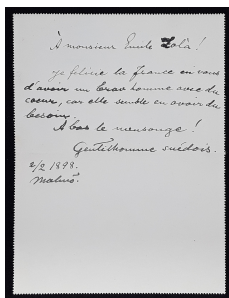 À monsieur Emile Zola!
je félicite la France en vous
d'avoir un brav homme avec du
coeur, car elle semble en avoir du
besoin.
A bas le mensonge!
Gentilhomme suédois.
2/2 1898.
Malmö.